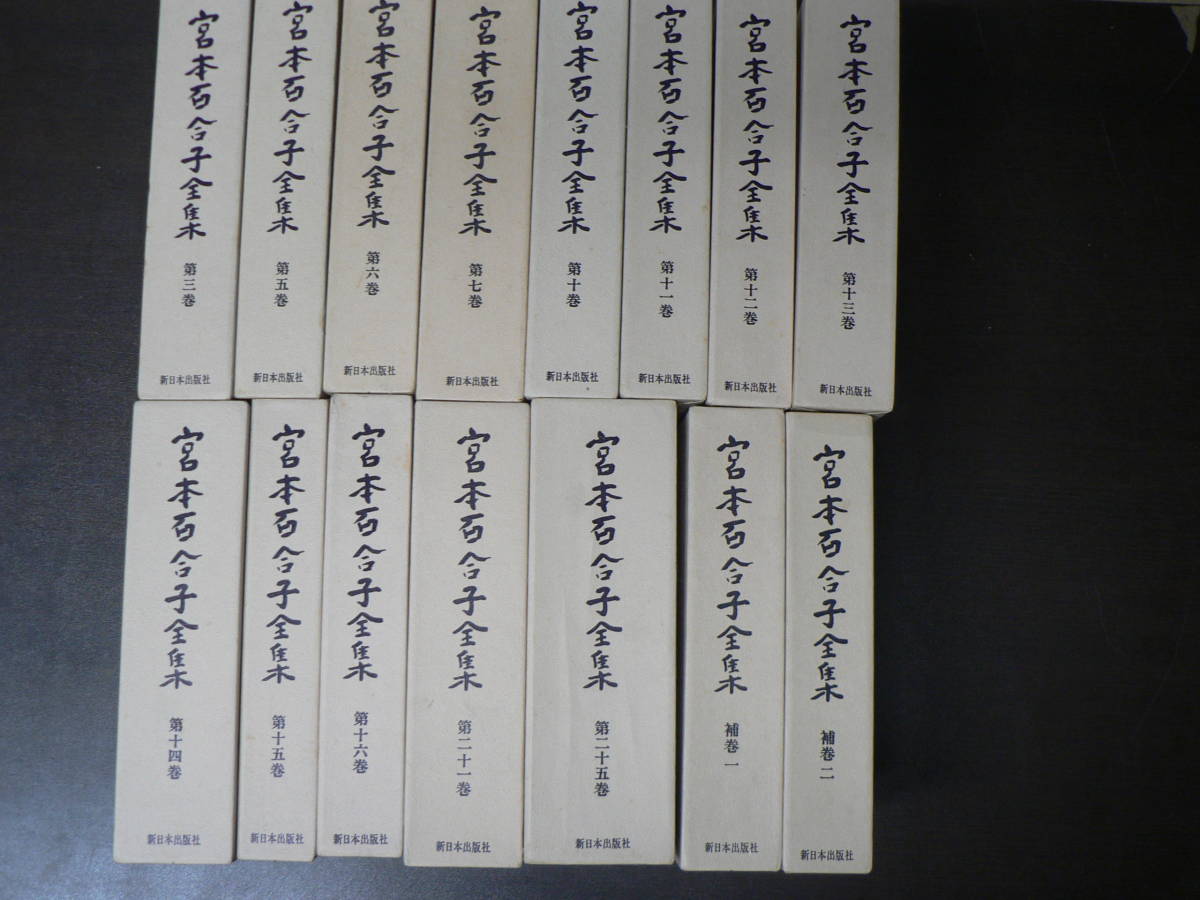 宮本百合子全集
第三巻
新日本出版社
宮本百合子全集
第五巻
新日本出版社
宮本百合子全集
第六巻
新日本出版社
宮本百合子全集
第七巻
新日本出版社
宮本百合子全集
第十巻
新日本出版社
宮本百合子全集
第十一巻
新日本出版社
宮本百合子全集
第十二巻
新日本出版社
宮本百合子全集
第十三巻
新日本出版社
宮本百合子全集
第十四巻
新日本出版社
宮本百合子全集
第十五巻
新日本出版社
宮本百合子全集
第十六巻
新日本出版社
宮本百合子全集
第二十一巻
新日本出版社
宮本百合子全集
第二十五巻
新日本出版社
宮本百合子全集
補巻一
新日本出版社
宮本百合子全集
補巻二
新日本出版社